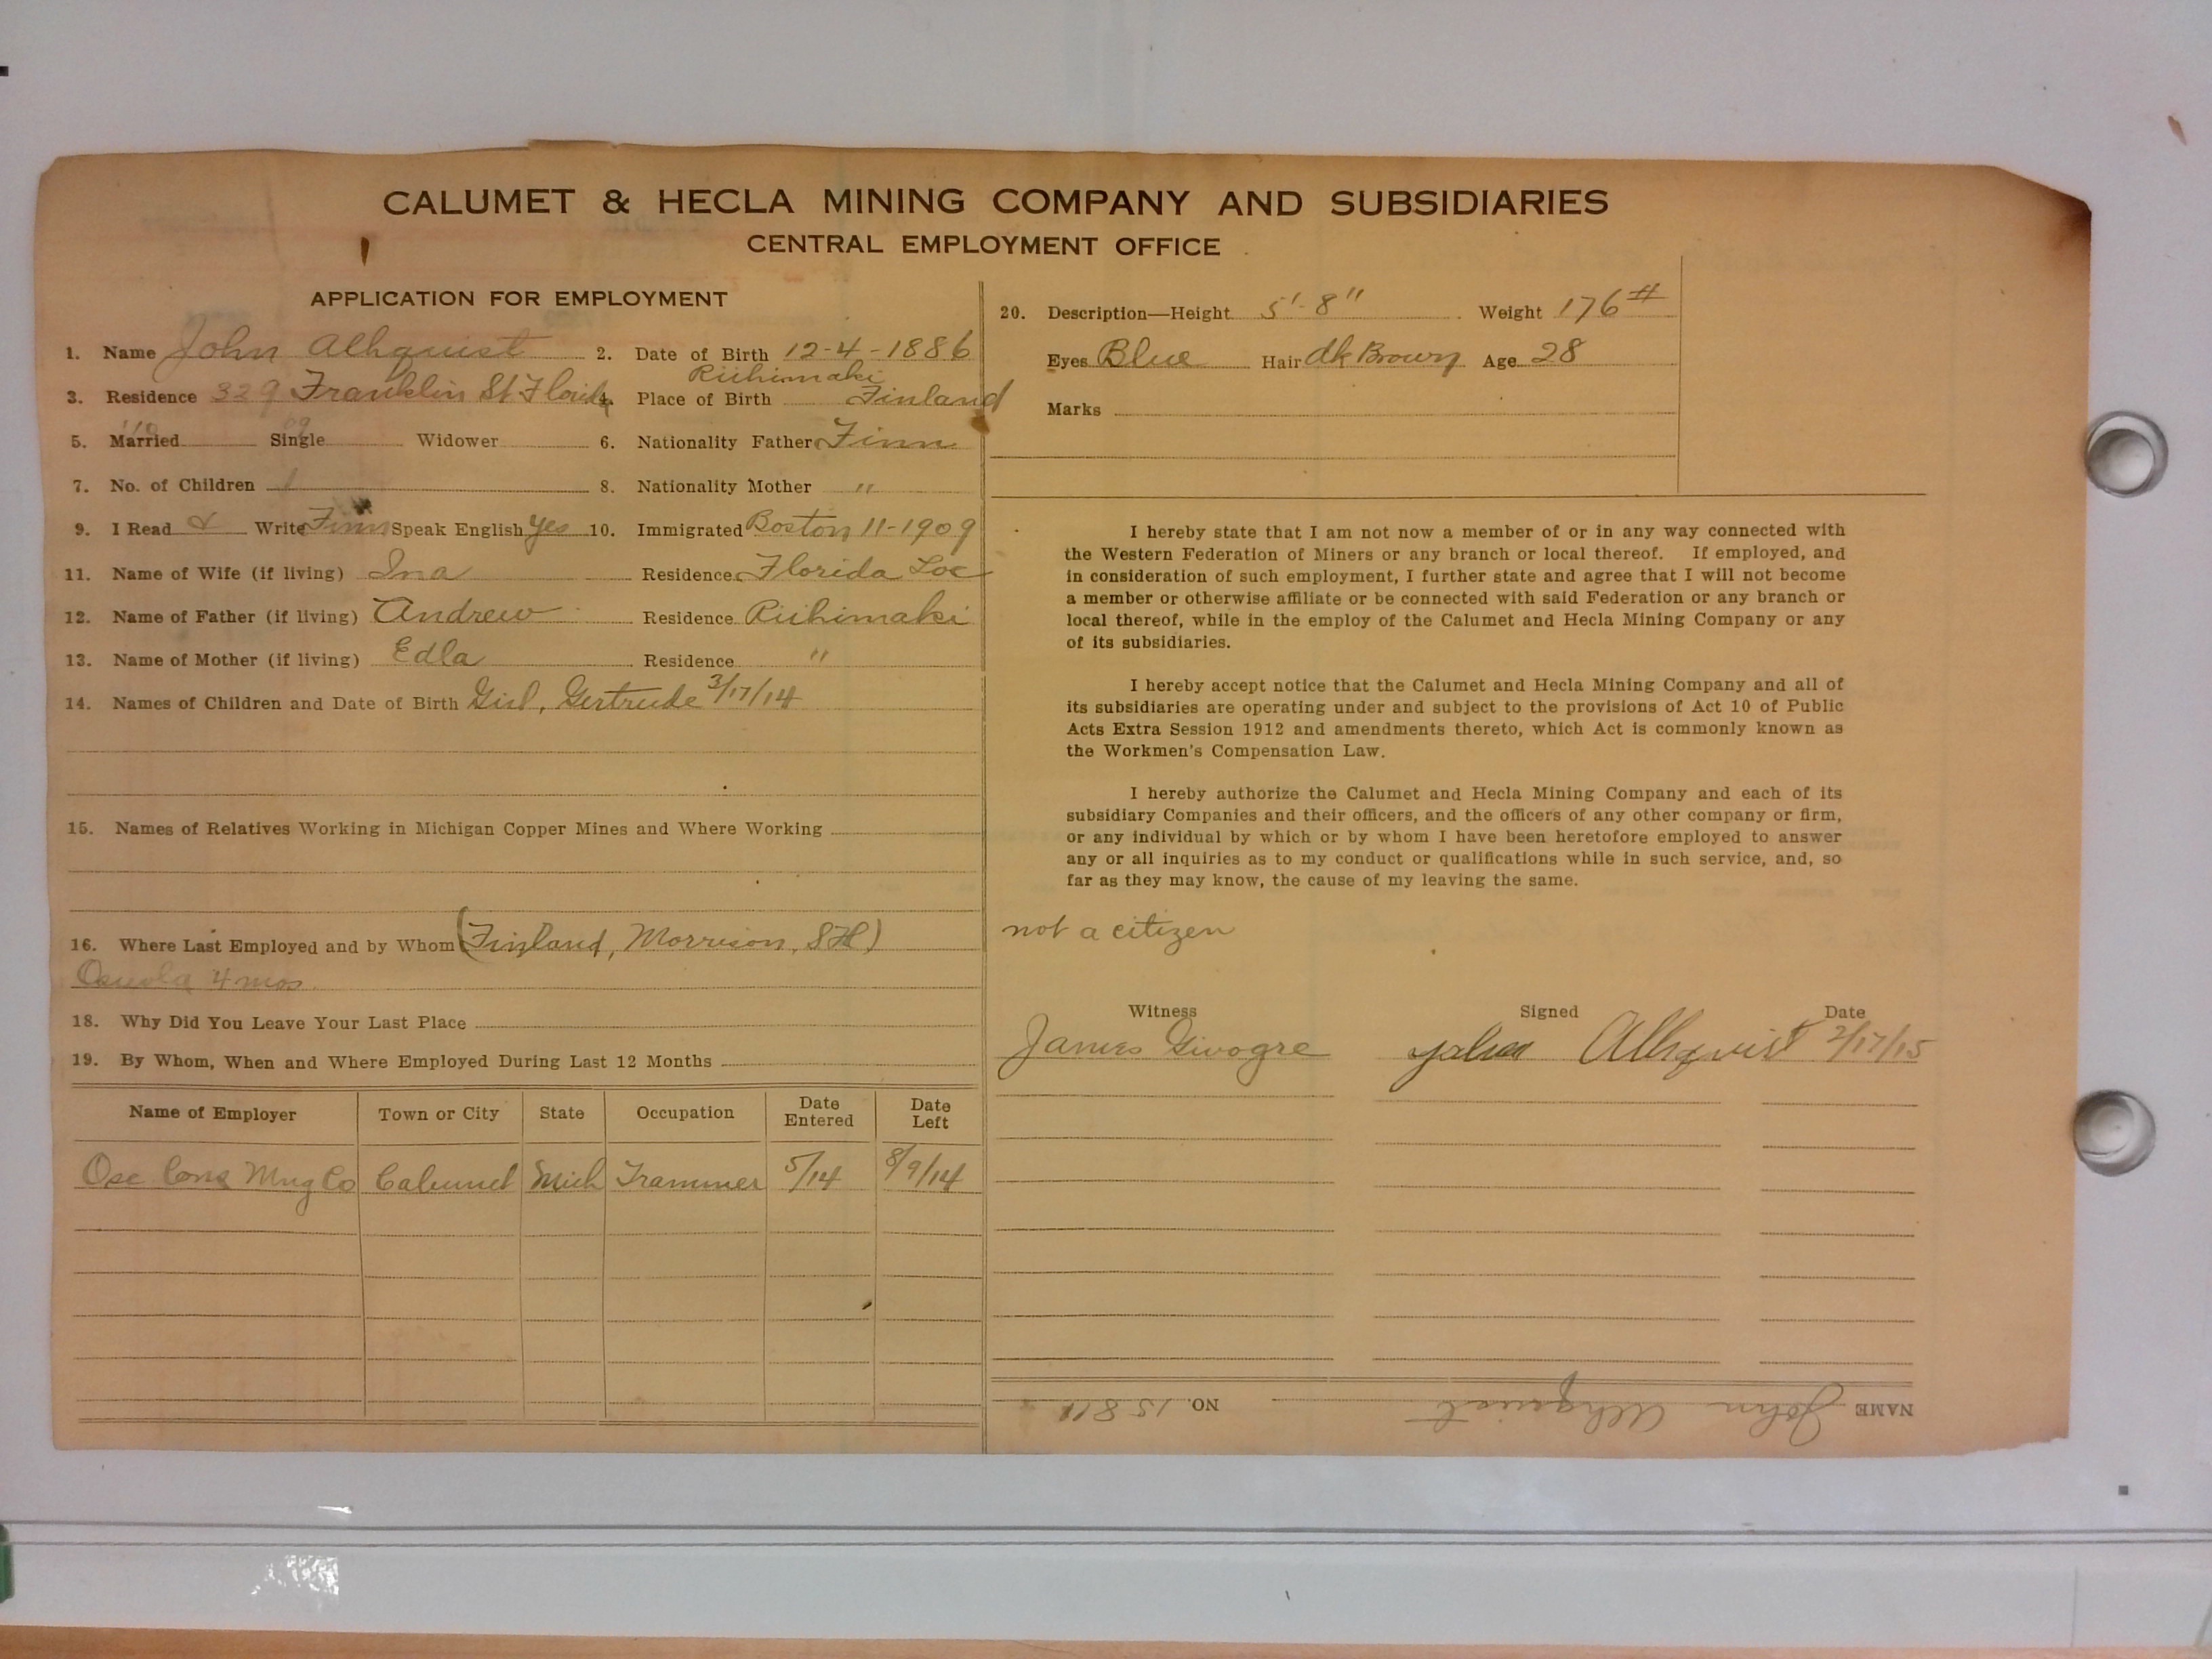 CALUMET & HECLA MINING COMPANY AND SUBSIDIARIES
CENTRAL EMPLOYMENT OFFICE
APPLICATION FOR EMPLOYMENT
1. Name John Alhquist 2. Date of Birth 12-4-1886
Riihimaki
3. Residence 329 Franklin St Florida 4. Place of Birth Finland
5. Married Single Widower 6. Nationality Father Finn
7. No. of Children 1 8. Nationality Mother "
9. I Read & Write Finn Speak English yes 10. Immigrated Boston 11-1909
11. Name of Wife (if living) Ina Residence Florida Loc
12. Name of Father (if living) Andrew Residence Riihimaki
13. Name of Mother (if living) Edla Residence "
14. Names of Children and Date of Birth Girl, Gertrude 3/17/14
15. Names of Relatives Working in Michigan Copper Mines and Where Working
16. Where Last Employed and by Whom (Finland, Morrison, SH)
Osceola 4 mos
18. Why Did You Leave Your Last Place
19. By Whom, When and Where Employed During Last 12 Months
Name of Employer Town or City State Occupation Date Entered Date Left
Osc Cons Mng Co Calumet Mich Trammer 5/14 8/9/14
20. Description—Height 5'-8" Weight 176#
Eyes Blue Hair dk Brown Age 28
Marks
I hereby state that I am not now a member of or in any way connected with
the Western Federation of Miners or any branch or local thereof. If employed, and
in consideration of such employment, I further state and agree that I will not become
a member or otherwise affiliate or be connected with said Federation or any branch or
local thereof, while in the employ of the Calumet and Hecla Mining Company or any
of its subsidiaries.
I hereby accept notice that the Calumet and Hecla Mining Company and all of
its subsidiaries are operating under and subject to the provisions of Act 10 of Public
Acts Extra Session 1912 and amendments thereto, which Act is commonly known as
the Workmen's Compensation Law.
I hereby authorize the Calumet and Hecla Mining Company and each of its
subsidiary Companies and their officers, and the officers of any other company or firm,
or any individual by which or by whom I have been heretofore employed to answer
any or all inquiries as to my conduct or qualifications while in such service, and, so
far as they may know, the cause of my leaving the same.
not a citizen
Witness Signed Date
James Givogre John Alhqvist 2/17/15
NAME John Alhquist NO. 15811